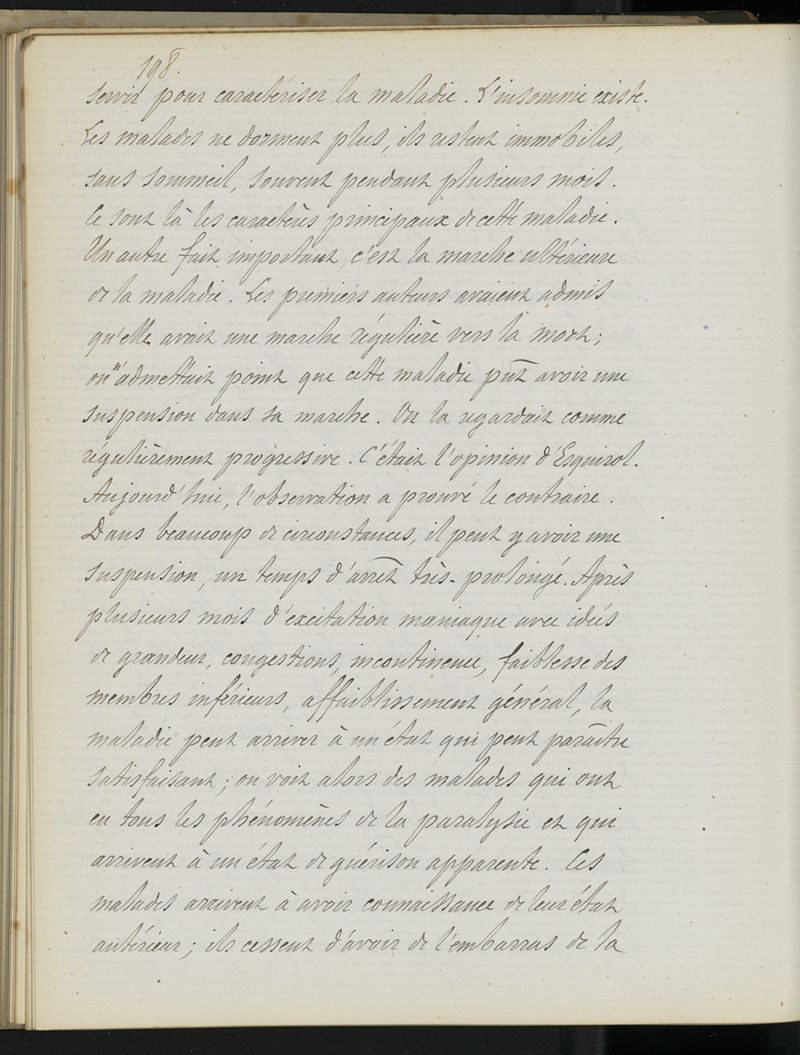 198.
servir pour caractériser la maladie. L'insomnie existe.
Les malades ne dorment plus, ils restent immobiles,
sans sommeil, souvent pendant plusieurs mois.
Ce sont là les caractères principaux de cette maladie.
Un autre fait important, c'est la marche ultérieure
de la maladie. Les premiers auteurs avaient admis
qu'elle avait une marche régulière vers la mort;
on n'admettait point que cette maladie pût avoir une
suspension dans sa marche. On la regardait comme
régulièrement progressive. C'était l'opinion d'Esquirol.
Aujourd'hui, l'observation a prouvé le contraire.
Dans beaucoup de circonstances, il peut y avoir une
suspension, un temps d'arrêt très-prolongé. Après
plusieurs mois d'excitation maniaque avec idées
de grandeur, congestions, incontinence, faiblesse des
membres inférieurs, affaiblissement général, la
maladie peut arriver à un état qui peut paraître
satisfaisant; on voit alors des malades qui ont
eu tous les phénomènes de la paralysie et qui
arrivent à un état de guérison apparente. Ces
malades arrivent à avoir connaissance de leur état
antérieur; ils cessent d'avoir de l'embarras de la